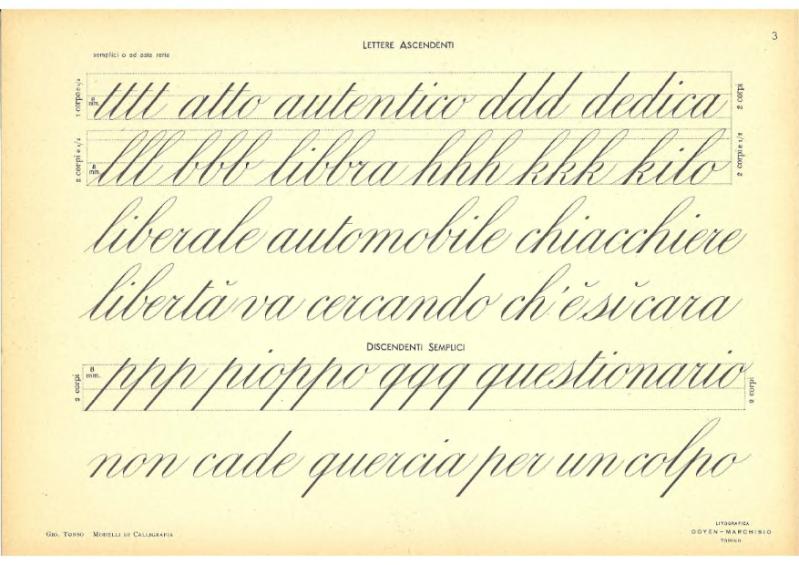 3
LETTERE ASCENDENTI
semplici o ad asta retta
1 corpo e 1/2
8 mm.
tttt atto autentico ddd dedica
2 corpi
2 corpi e 1/2
8 mm.
lll bbb libbra hhh kkk kilo
2 corpi e 1/2
liberale automobile chiacchiere
libertă va cercando ch'ĕ sĭ cara
DISCENDENTI SEMPLICI
2 corpi
8 mm.
ppp pioppo qqq questionario
2 corpi
non cade quercia per un colpo
GIO. TONSO MODELLI DI CALLIGRAFIA
LITOGRAFICA
DOYEN-MARCHISIO
TORINO